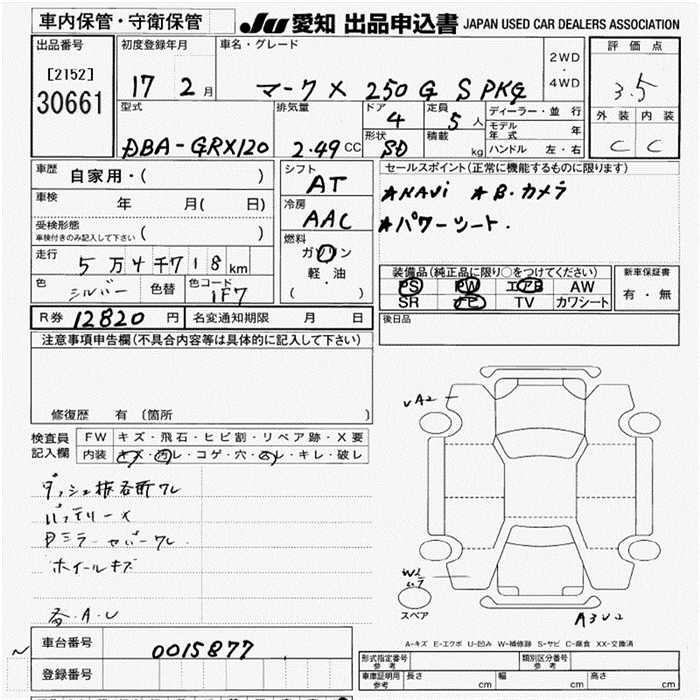 車内保管・守衛保管
JU 愛知 出品申込書 JAPAN USED CAR DEALERS ASSOCIATION
出品番号
[2152]
30661
初度登録年月
17 2 月
車名・グレード
マークX 250G S PKG
2WD
・
4WD
評価点
3.5
外装 内装
C C
型式
DBA-GRX120
排気量
2.49 CC
ドア
4
定員
5 人
形状
SD
積載
kg
ディーラー・並行
モデル年式 年
ハンドル 左・右
車歴
自家用・( )
車検
年 月( 日)
受検形態
車検付きのみ記入して下さい ( )
走行
5万4千718km
色
シルバー
色替
色コード
1F7
シフト
AT
冷房
AAC
燃料
ガソリン
軽・油
( )
R券 12820 円
名変通知期限 月 日
セールスポイント(正常に機能するものに限ります)
★NAVi ★B・カメラ
★パワーシート.
装備品(純正品に限り○をつけてください)
PS PW エアB AW
SR ナビ TV カワシート
新車保証書
有・無
後日品
注意事項申告欄(不具合内容等は具体的に記入して下さい)
修復歴 有(箇所 )
検査員
記入欄
FW キズ・飛石・ヒビ割・リペア跡・X要
内装 キズ・汚レ・コゲ・穴・スレ・キレ・破レ
バッテリーX
ホイールキズ
各.A.U
vA2
W2
A3U2
スペア
A-キズ E-エクボ U-凹み W-補修跡 S-サビ C-腐食 XX-交換済
車台番号
0015877
登録番号
形式指定番号
参考
類別区分番号
参考
車庫証明用
参考
長さ cm
幅 cm
高さ cm